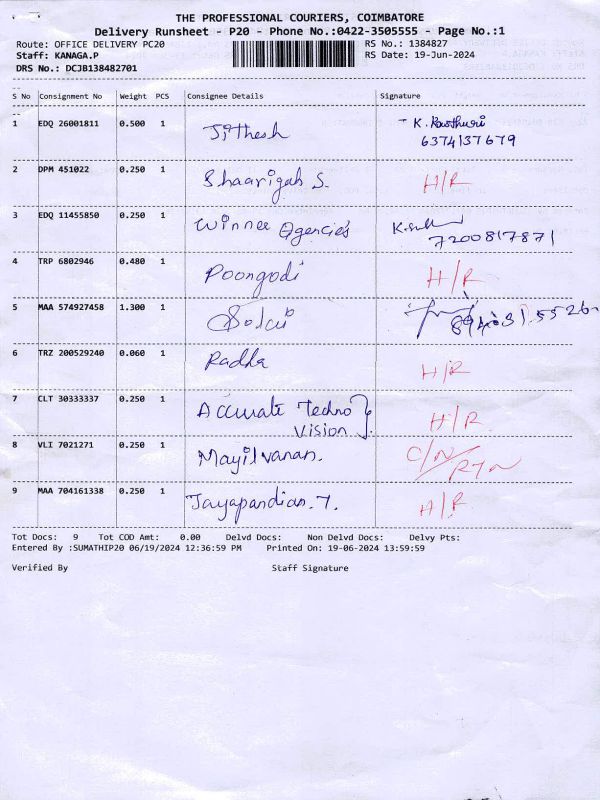 THE PROFESSIONAL COURIERS, COIMBATORE
Delivery Runsheet - P20 - Phone No.:0422-3505555 - Page No.:1
Route: OFFICE DELIVERY PC20 RS No.: 1384827
Staff: KANAGA.P RS Date: 19-Jun-2024
DRS No.: DCJB138482701
S No Consignment No Weight PCS Consignee Details Signature
1 EDQ 26001811 0.500 1 Jithesh K.
6374137679
2 DPM 451022 0.250 1 Shaarigah S. H/R
3 EDQ 11455850 0.250 1 Winner Agencies
7200817871
4 TRP 6802946 0.480 1 Poongodi H/R
5 MAA 574927458 1.300 1
6 TRZ 200529240 0.060 1 Radha H/R
7 CLT 30333337 0.250 1 Accurate Techno H/R
Vision
8 VLI 7021271 0.250 1 Mayilvanan. C/N/RTN
9 MAA 704161338 0.250 1 Jayapandian.T. H/R
Tot Docs: 9 Tot COD Amt: 0.00 Delvd Docs: Non Delvd Docs: Delvy Pts:
Entered By :SUMATHIP20 06/19/2024 12:36:59 PM Printed On: 19-06-2024 13:59:59
Verified By Staff Signature